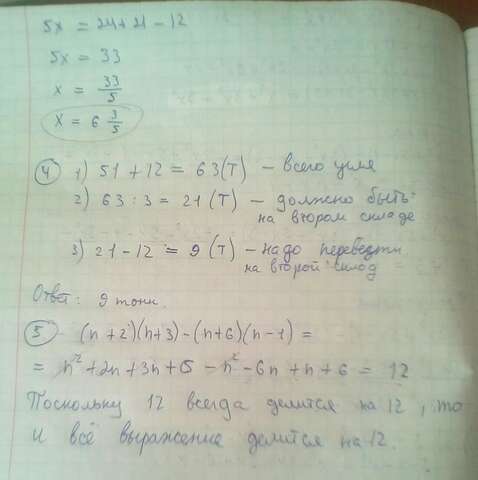 5x = 24 + 21 - 12
5x = 33
x = 33/5
x = 6 3/5
4 1) 51 + 12 = 63 (т) - всего угля
2) 63 : 3 = 21 (т) - должно быть
на втором складе
3) 21 - 12 = 9 (т) - надо перевезти
на второй склад
Ответ: 9 тонн.
5 (n + 2)(n+3) - (n+6)(n-1) =
= n² + 2n + 3n + 6 - n² - 6n + n + 6 = 12
Поскольку 12 всегда делится на 12, то
и всё выражение делится на 12.